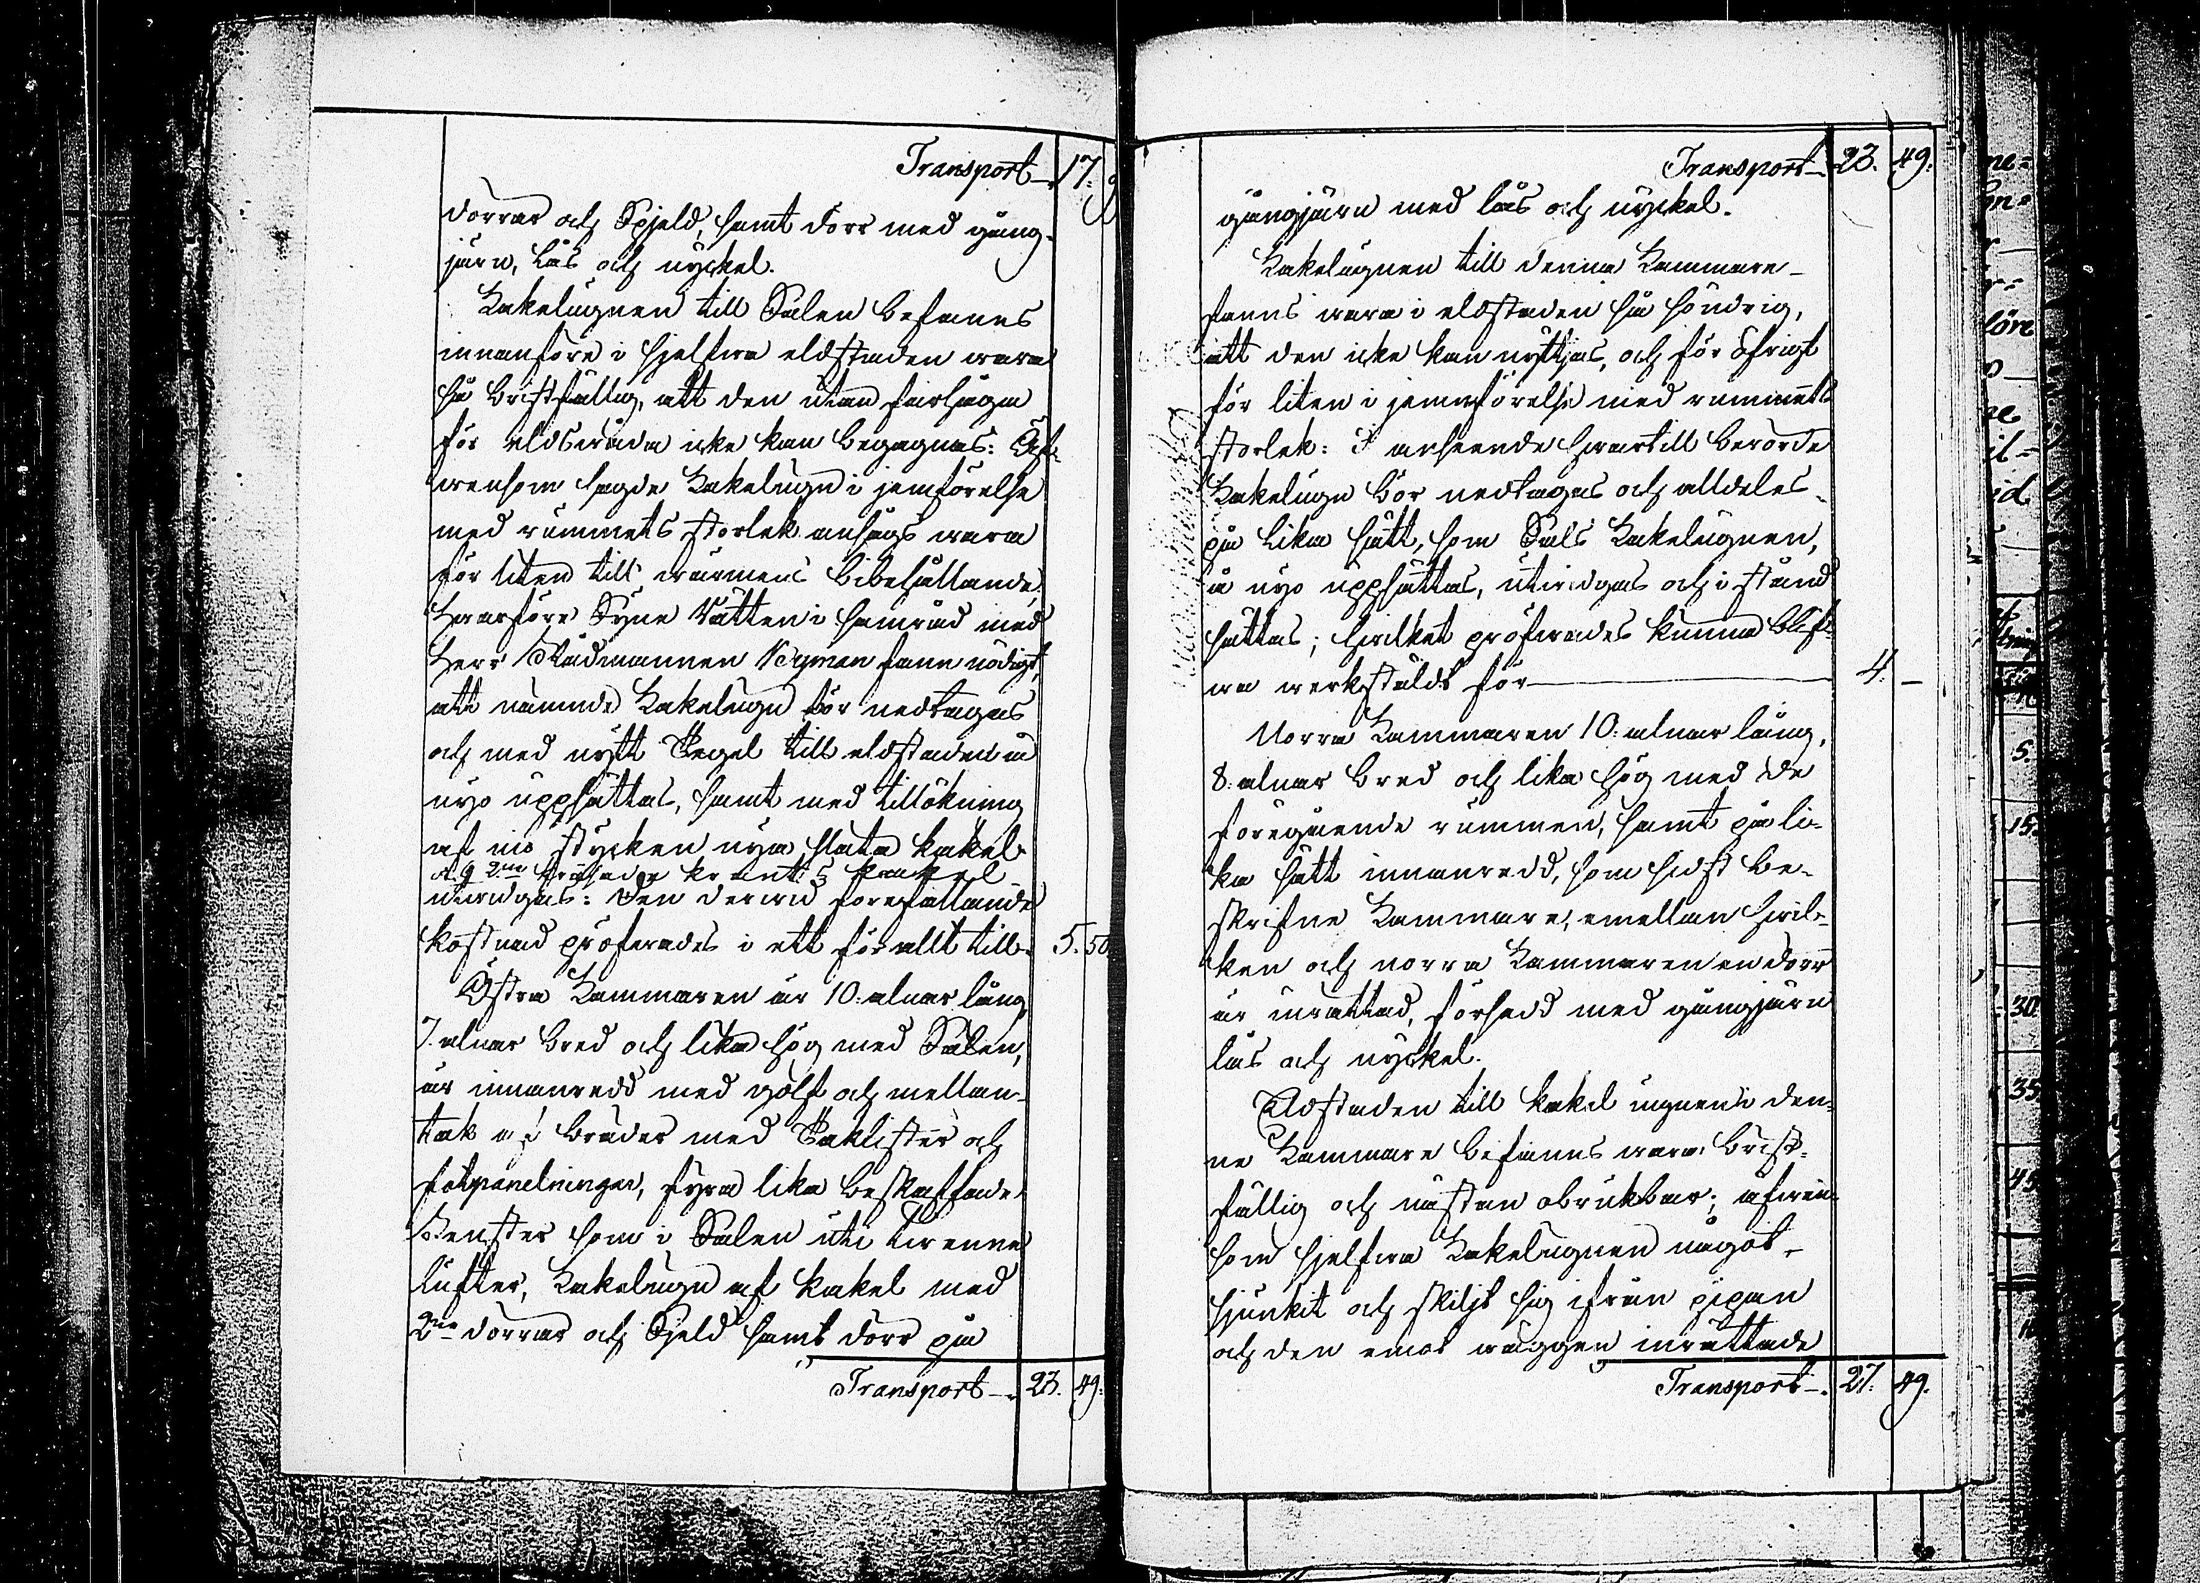 Transport 17. 9
dörrar och Spjeld, samt dörr med gång-
järn, Lås och nyckel.
Kakelugnen till Salen befanns
innanföre i sjelfva eldstaden wara
så bristfällig, att den utan farhåga
för eldswåda icke kan begagnas: Äf-
wensom sagde Kakelugn i jemförelse
med rummets storlek ansågs wara
för liten till wärmens bibehållande,
hwarföre Syne Rätten i samråd med
Herr Rådmannen Nyman fann nödigt,
att nämnde Kakelugn bör nedtagas
och med nytt Tegel till eldstaden å
nyo uppsättas, samt med tillökning
af nio stycken nya släta kakel
o. 9 2ne krantz kakel
utwidgas: Den derwid förefallande
kostnad pröfwades i ett för allt till 5. 50
Östra Kammaren är 10: alnar lång,
7. alnar bred och lika hög med Salen,
är innanredd med golf och mellan-
tak af bräder med Taklister och
fotpanelningar, fyra lika beskaffade
Fenster som i Salen uti twenne
Lufter, Kakelugn af kakel med
2ne dörrar och Spjeld samt dörr på
Transport 23. 49.
Transport 23. 49.
gångjärn med lås och nyckel.
Kakelugnen till denna Kammare
fanns wara i eldstaden så söndrig,
att den icke kan nyttjas, och för öfrigt
för liten i jemnförelse med rummets
storlek: I anseende hwartill berörde
Kakelugn bör nedtagas och alldeles
på lika sätt, som Sals Kakelugnen,
å nyo uppsättas, utwidgas och i stånd
sättas; hwilket pröfwades kunna blif-
wa werkstäldt för 4. –
Norra Kammaren 10: alnar lång,
8: alnar bred och lika hög med de
föregående rummen, samt på li-
ka sätt innanredd, som sidst be-
skrifne Kammare, emellan hwil-
ken och norra Kammaren en dörr
är inrättad, försedd med gångjärn
lås och nyckel.
Eldstaden till kakelugnen i den-
ne Kammare befanns wara brist-
fällig och nästan obrukbar; äfwen
som sjelfva Kakelugnen något
sjunkit och skiljt sig ifrån pipan
och den emot wäggen inrättade
Transport 27. 49.
5.
15.
30.
35
45